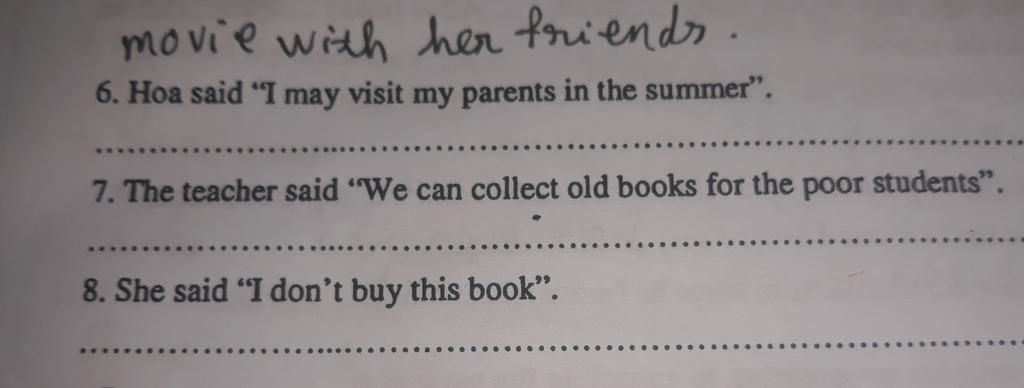 movie with her friends.
6. Hoa said “I may visit my parents in the summer”.
7. The teacher said “We can collect old books for the poor students”.
8. She said “I don’t buy this book”.